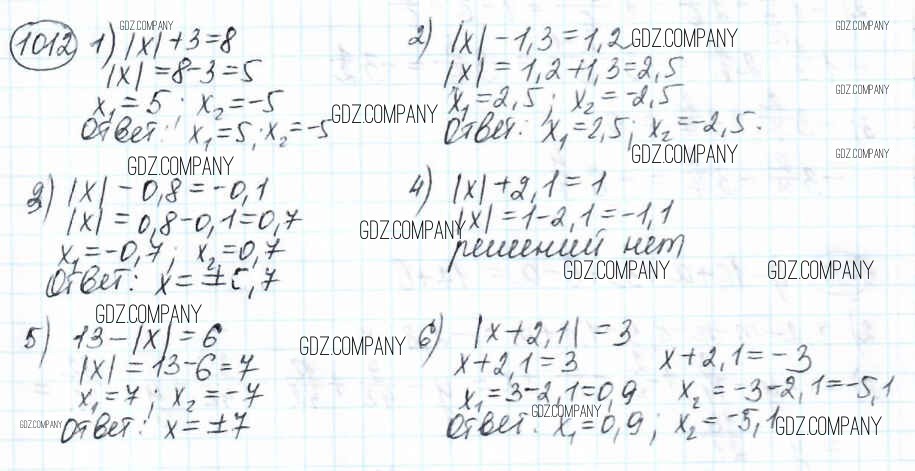 GDZ.COMPANY
1012 1) |x| + 3 = 8
|x| = 8 - 3 = 5
x₁ = 5 ; x₂ = -5
Ответ: x₁ = 5; x₂ = -5
GDZ.COMPANY
2) |x| - 1,3 = 1,2
GDZ.COMPANY
GDZ.COMPANY
|x| = 1,2 + 1,3 = 2,5
x₁ = 2,5 ; x₂ = -2,5
GDZ.COMPANY
Ответ: x₁ = 2,5; x₂ = -2,5.
GDZ.COMPANY
GDZ.COMPANY
GDZ.COMPANY
3) |x| - 0,8 = -0,1
|x| = 0,8 - 0,1 = 0,7
x₁ = -0,7 ; x₂ = 0,7
Ответ: x = ± ,7
GDZ.COMPANY
4) |x| + 2,1 = 1
|x| = 1 - 2,1 = -1,1
решений нет
GDZ.COMPANY
GDZ.COMPANY
GDZ.COMPANY
5) 13 - |x| = 6
|x| = 13 - 6 = 7
x₁ = 7 ; x₂ = -7
GDZ.COMPANY
Ответ: x = ±7
GDZ.COMPANY
6) |x + 2,1| = 3
x + 2,1 = 3 x + 2,1 = -3
x₁ = 3 - 2,1 = 0,9 x₂ = -3 - 2,1 = -5,1
GDZ.COMPANY
Ответ: x₁ = 0,9 ; x₂ = -5,1
GDZ.COMPANY